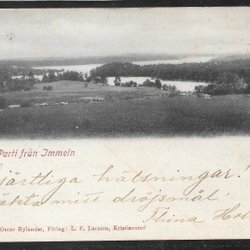 Parti från Immeln
Hjärtliga hälsningar.
sakta mitt dröjsmål,
Thina
Oscar Rylander, Förlag: L. F. Larsson, Kristianstad